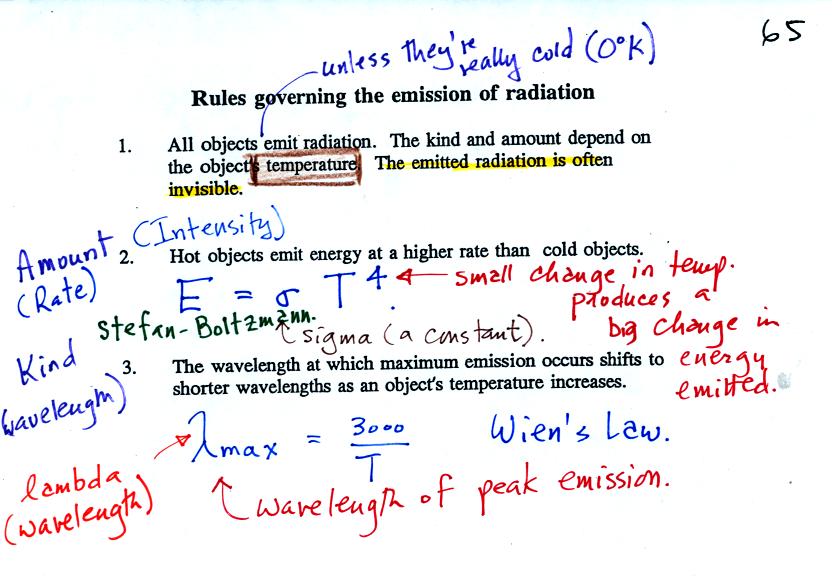 65
unless they're
really cold (0°K)
Rules governing the emission of radiation
1. All objects emit radiation. The kind and amount depend on
the object's temperature. The emitted radiation is often
invisible.
Amount (Intensity)
(Rate)
2. Hot objects emit energy at a higher rate than cold objects.
E = σ T⁴ ← small change in temp.
produces a
big change in
energy
emitted.
Stefan-Boltzmann.
sigma (a constant).
Kind
(wavelength)
3. The wavelength at which maximum emission occurs shifts to
shorter wavelengths as an object's temperature increases.
λmax = 3000/T Wien's Law.
lambda
(wavelength)
wavelength of peak emission.